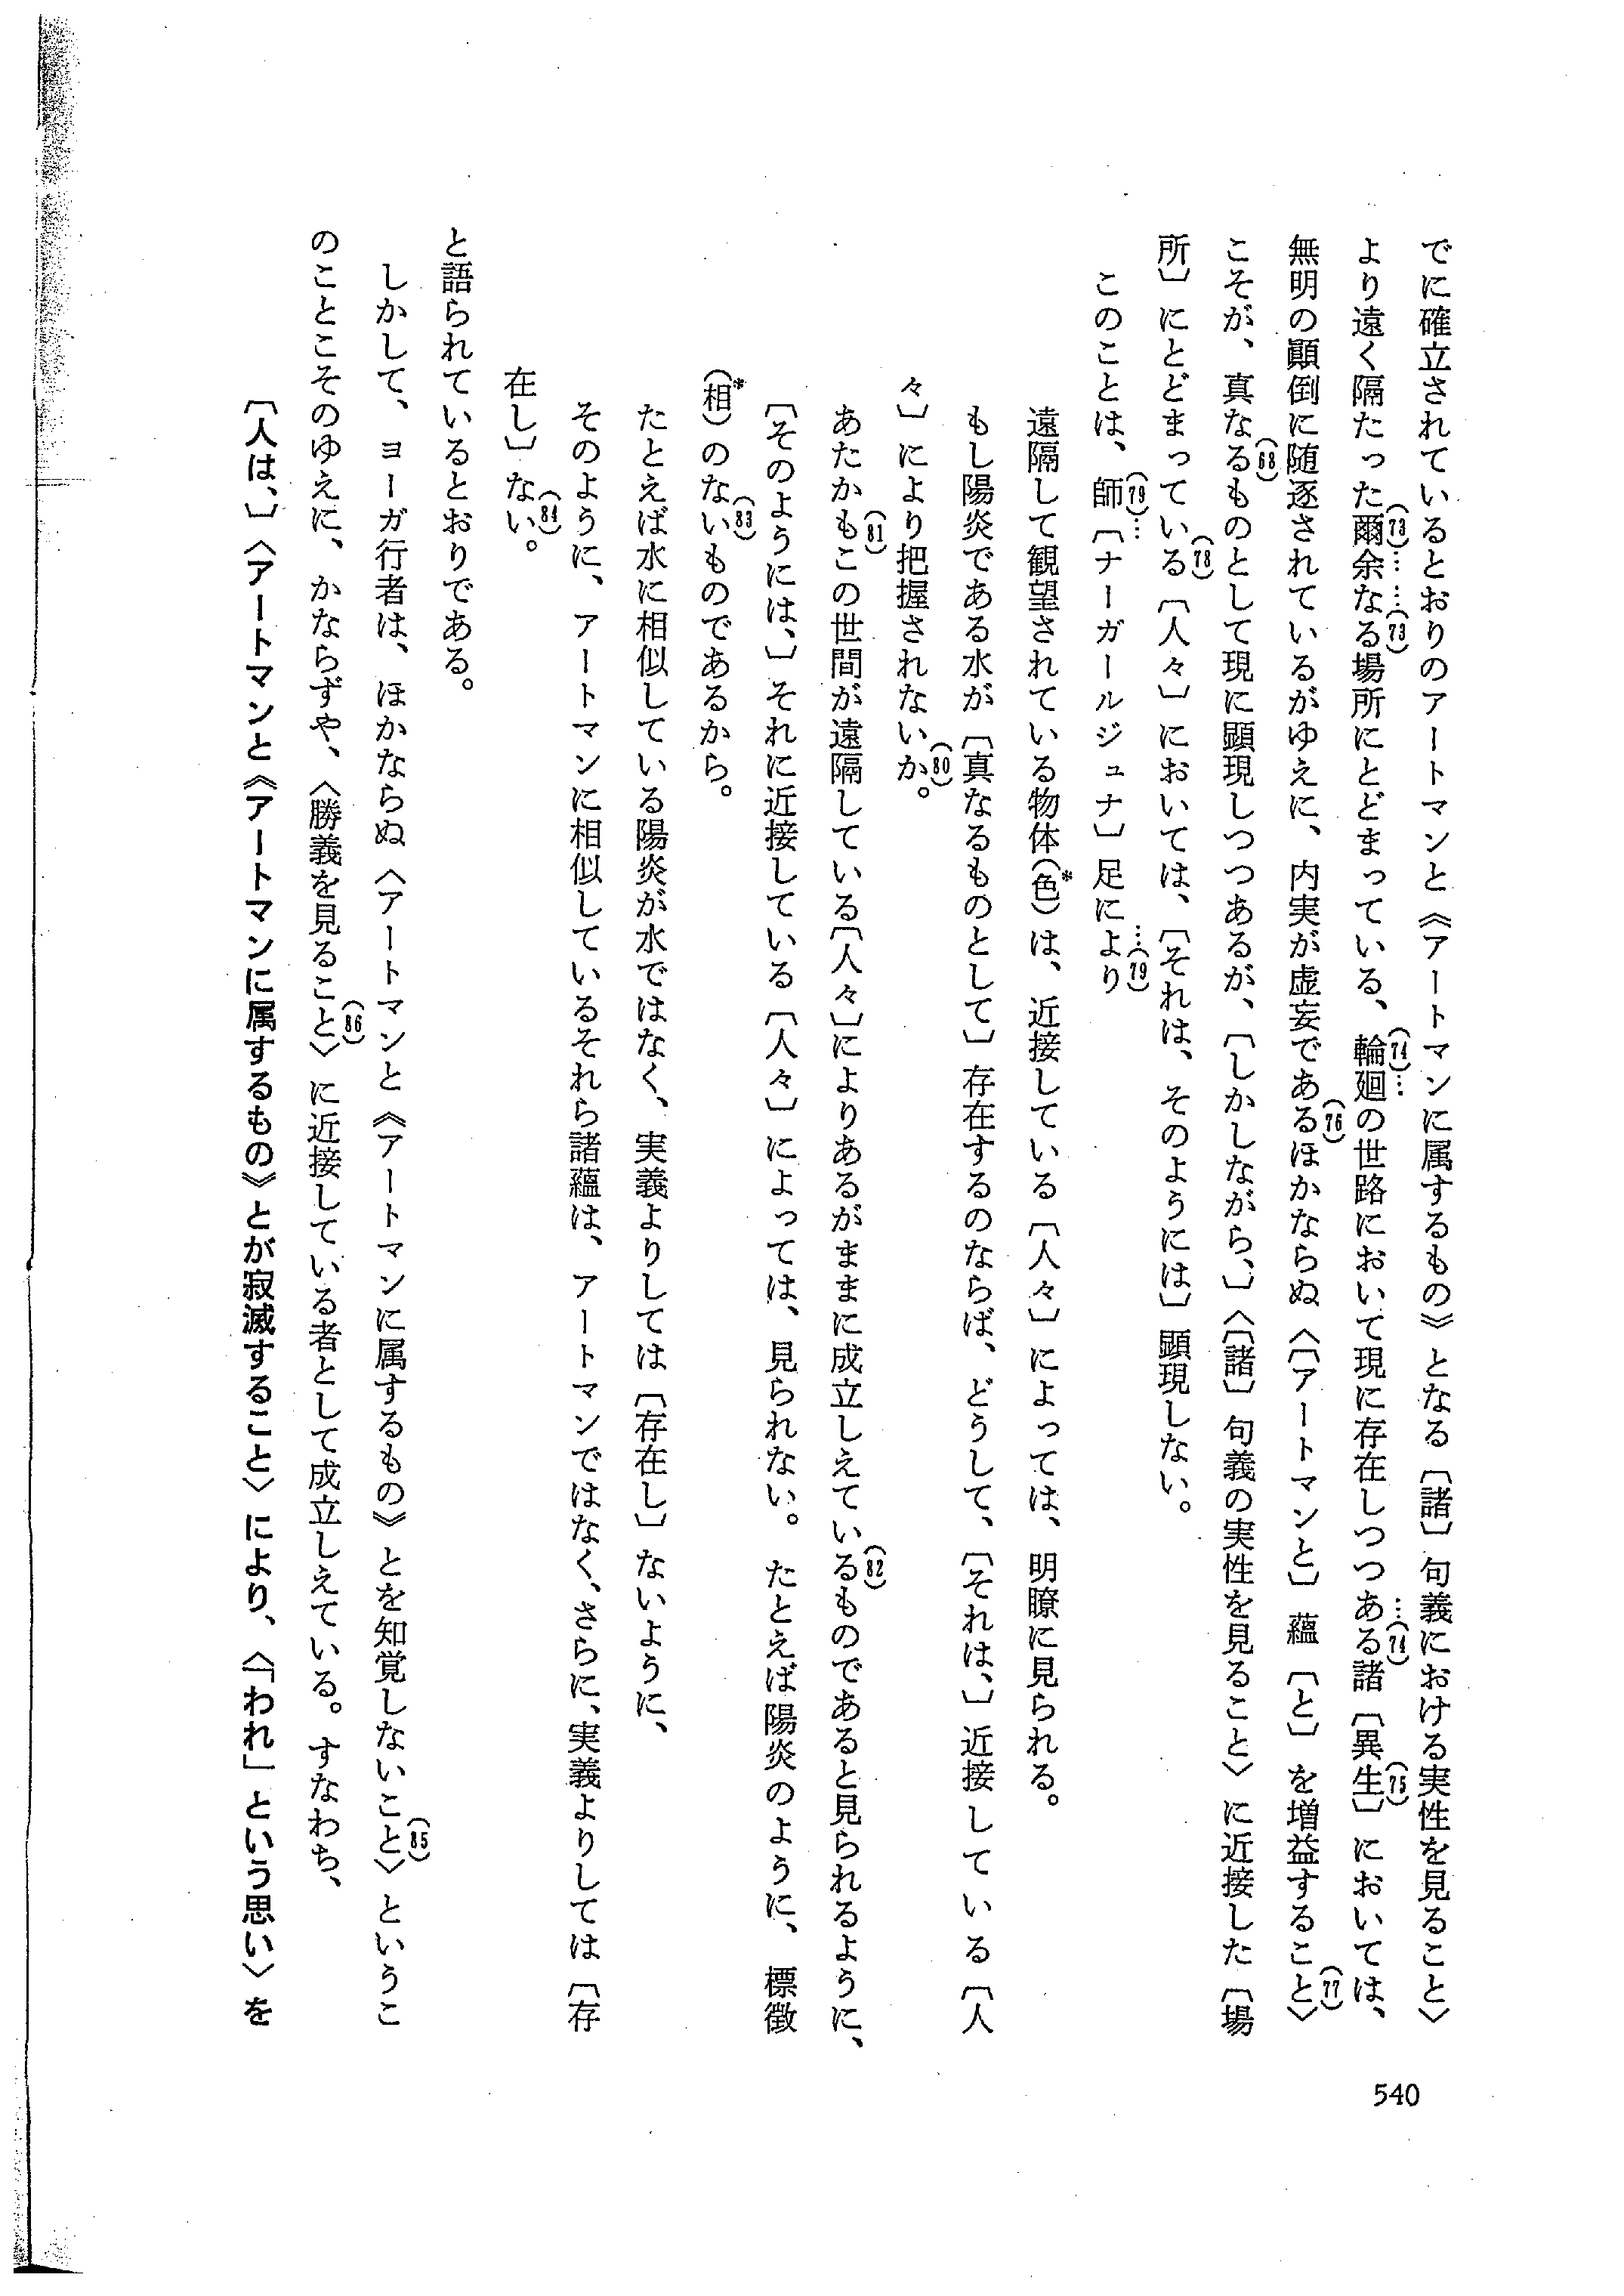 でに確立されているとおりのアートマンと《アートマンに属するもの》となる〔諸〕句義における実性を見ること〉
より遠く隔たった(73)…爾余なる…(73)場所にとどまっている、(74)…輪廻の世路において現に存在しつつある…(74)諸〔異生〕(75)においては、
無明の顚倒に随逐されているがゆえに、内実が虚妄である(76)ほかならぬ〈〔アートマンと〕蘊〔と〕を増益すること〉(77)
こそが、真なる(68)ものとして現に顕現しつつあるが、〔しかしながら、〕〈〔諸〕句義の実性を見ること〉に近接した〔場
所〕にとどまっている(78)〔人々〕においては、〔それは、そのようには〕顕現しない。
このことは、(79)…師〔ナーガールジュナ〕足により…(79)
遠隔して観望されている物体(色*)は、近接している〔人々〕によっては、明瞭に見られる。
もし陽炎である水が〔真なるものとして〕存在するのならば、どうして、〔それは、〕近接している〔人
々〕により把握されないか(80)。
あたかも(81)この世間が遠隔している〔人々〕によりあるがままに成立しえている(82)ものであると見られるように、
〔そのようには、〕それに近接している〔人々〕によっては、見られない。たとえば陽炎のように、標徴
(相*)のない(83)ものであるから。
たとえば水に相似している陽炎が水ではなく、実義よりしては〔存在し〕ないように、
そのように、アートマンに相似しているそれら諸蘊は、アートマンではなく、さらに、実義よりしては〔存
在し〕ない(84)。
と語られているとおりである。
しかして、ヨーガ行者は、ほかならぬ〈アートマンと《アートマンに属するもの》とを知覚しないこと〉(85)というこ
のことこそのゆえに、かならずや、〈勝義を見ること〉(86)に近接している者として成立しえている。すなわち、
〔人は、〕〈アートマンと《アートマンに属するもの》とが寂滅すること〉により、〈「われ」という思い〉を
540